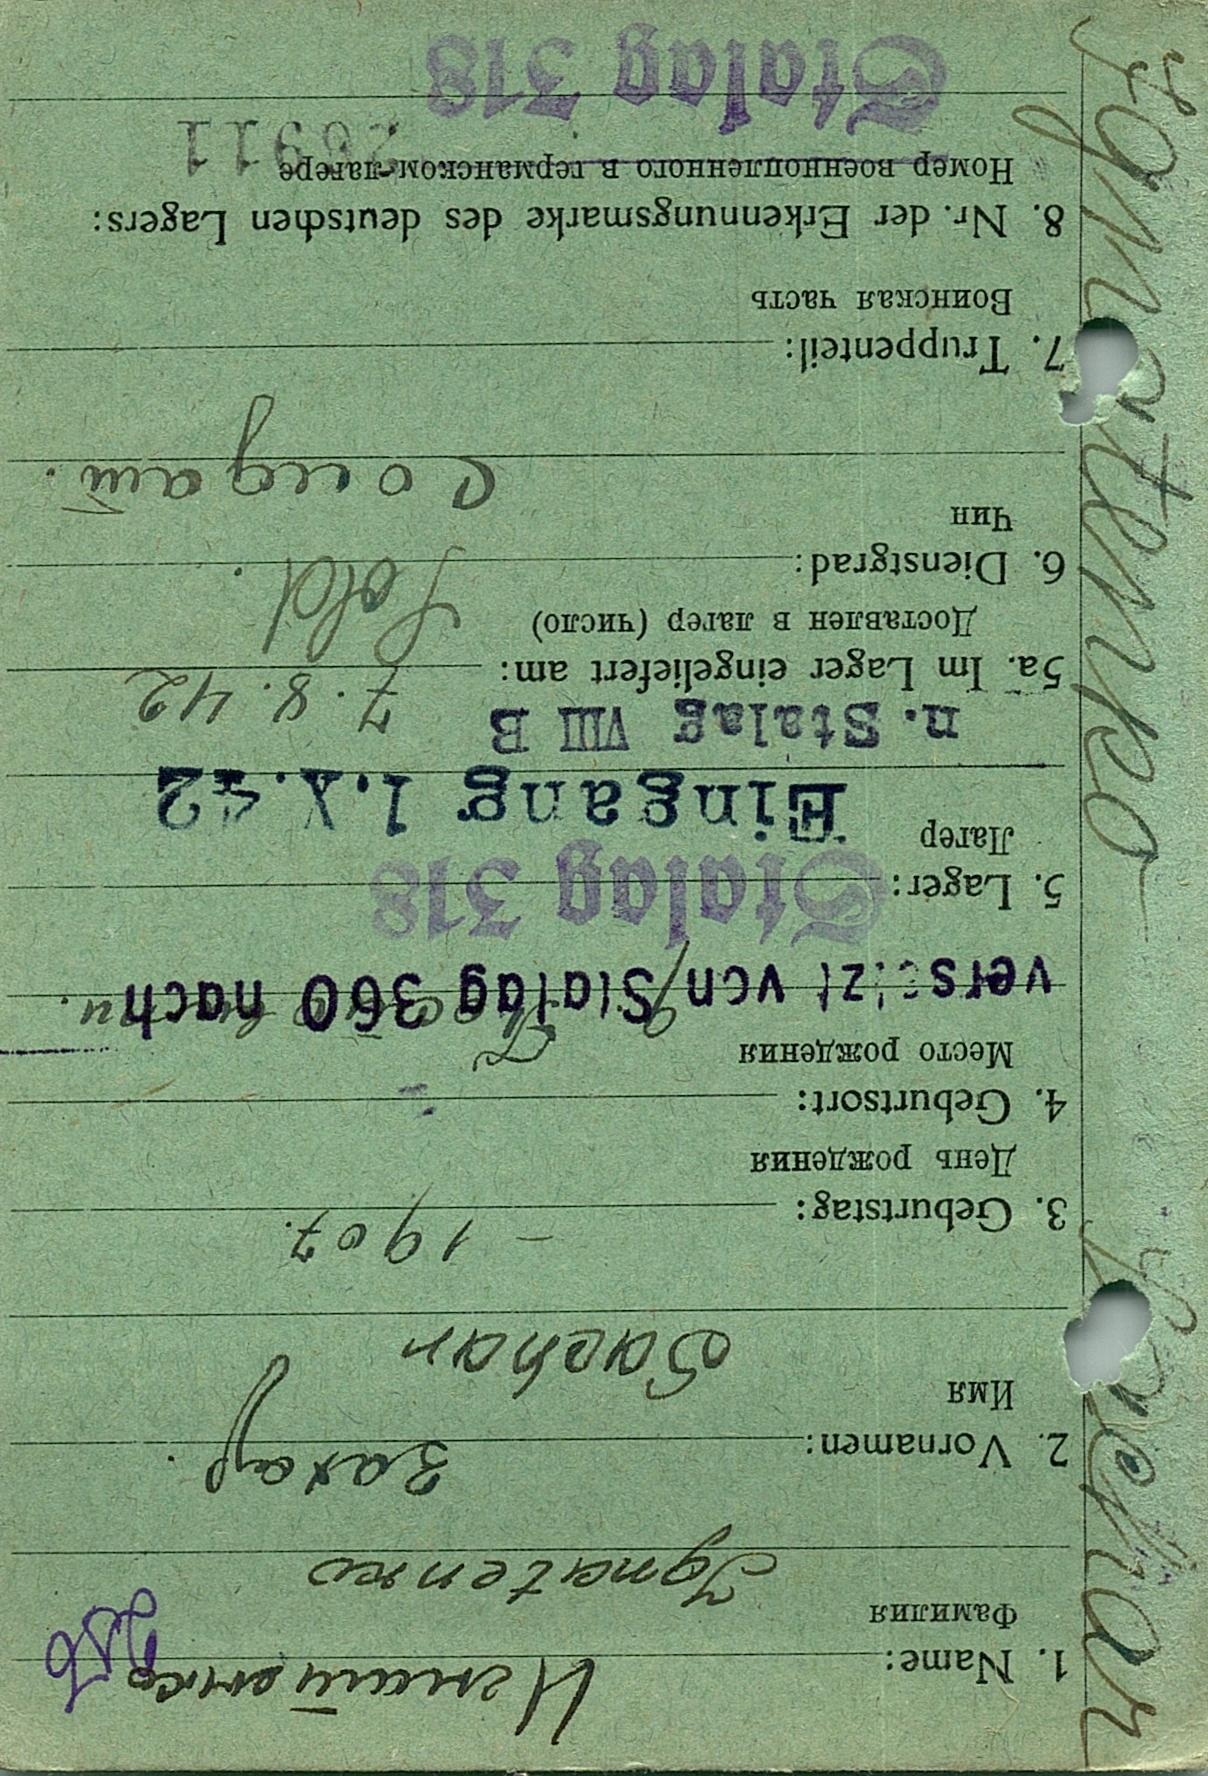 Ignatenko Sachar
1. Name: Игнатенко
Фамилия
Ignatenko
2. Vornamen: Захар.
Имя
Sachar
3. Geburtstag: - 1907.
День рождения
4. Geburtsort:
Место рождения
versetzt von Stalag 360 nach
Stalag 318
5. Lager:
Лагер
Eingang 1.X.42
n. Stalag VIII B
5a. Im Lager eingeliefert am: 7.8.42
Доставлен в лагер (число)
6. Dienstgrad: Sold.
Чин
Солдат.
7. Truppenteil:
Воинская часть
8. Nr. der Erkennungsmarke des deutschen Lagers:
Номер военнопленного в германском лагере 26911
Stalag 318